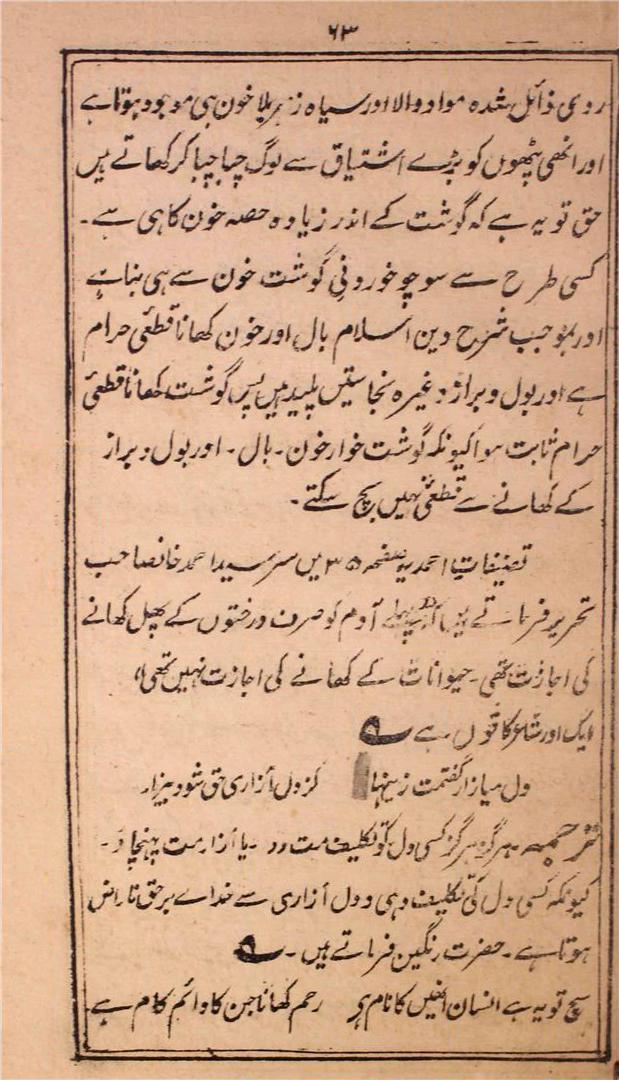 ۶۳
ردی زائل شدہ مواد والا اور سیاہ زہریلا خون ہی موجود ہوتا ہے
اور انھی پٹھوں کو بڑے اشتیاق سے لوگ چبا چبا کر کھاتے ہیں
حق تو یہ ہے کہ گوشت کے اندر زیادہ حصہ خون کا ہی ہے۔
کسی طرح سے سوچو خوردنی گوشت خون سے ہی بنا ہے
اور بموجب شرح دین اسلام بال اور خون کھانا قطعی حرام
ہے اور بول و براز وغیرہ نجاستیں پلید ہیں پس گوشت کھانا قطعی
حرام ثابت ہوا کیونکہ گوشت خوار خون۔ بال۔ اور بول و براز
کے کھانے سے قطعی نہیں بچ سکتے۔
تصنیفات احمدیہ صفحہ ۳۵ میں سر سید احمد خانصاحب
تحریر فرماتے ہیں کہ پہلے آدم کو صرف درختوں کے پھل کھانے
کی اجازت تھی۔ حیوانات کے کھانے کی اجازت نہیں تھی"
ایک اور شاعر کا قول ہے ؎
دل میازار گفتمت زینہار کز دل آزاری حق شود بیزار
ترجمہ ہرگز ہرگز کسی دل کو تکلیف مت دو۔ یا آزار مت پہنچاؤ۔
کیونکہ کسی دل کی تکلیف دہی و دل آزاری سے خدائے برحق ناراض
ہوتا ہے۔ حضرت رنگین فرماتے ہیں۔ ؎
سچ تو یہ ہے انسان انھیں کا نام ہے رحم کھانا جن کا دائم کام ہے